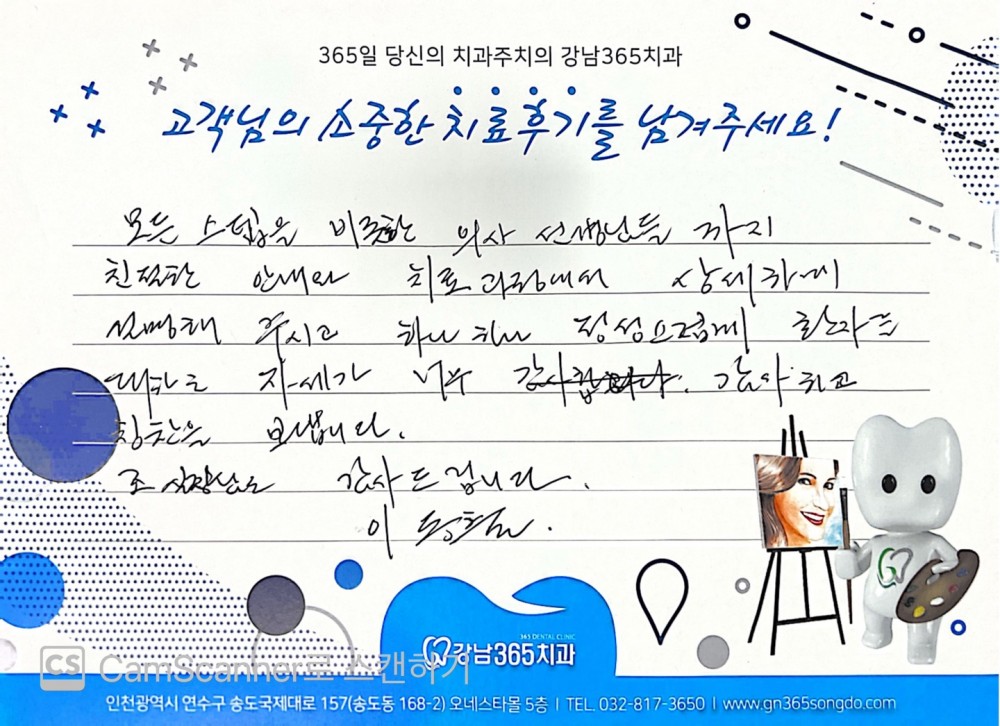 365일 당신의 치과주치의 강남365치과
고객님의 소중한 치료후기를 남겨주세요!
모든 스텝을 비롯한 의사 선생님들 까지
친절한 안내와 치료과정에서 상세하게
설명해 주시고 하나 하나 정성스럽게 환자를
대하는 자세가 너무 감사합니다. 감사하고
칭찬을 보냅니다.
조 실장님도 감사드립니다.
이
365 DENTAL CLINIC
강남365치과
CS CamScanner로 스캔하기
인천광역시 연수구 송도국제대로 157(송도동 168-2) 오네스타몰 5층 | TEL. 032-817-3650 | www.gn365songdo.com